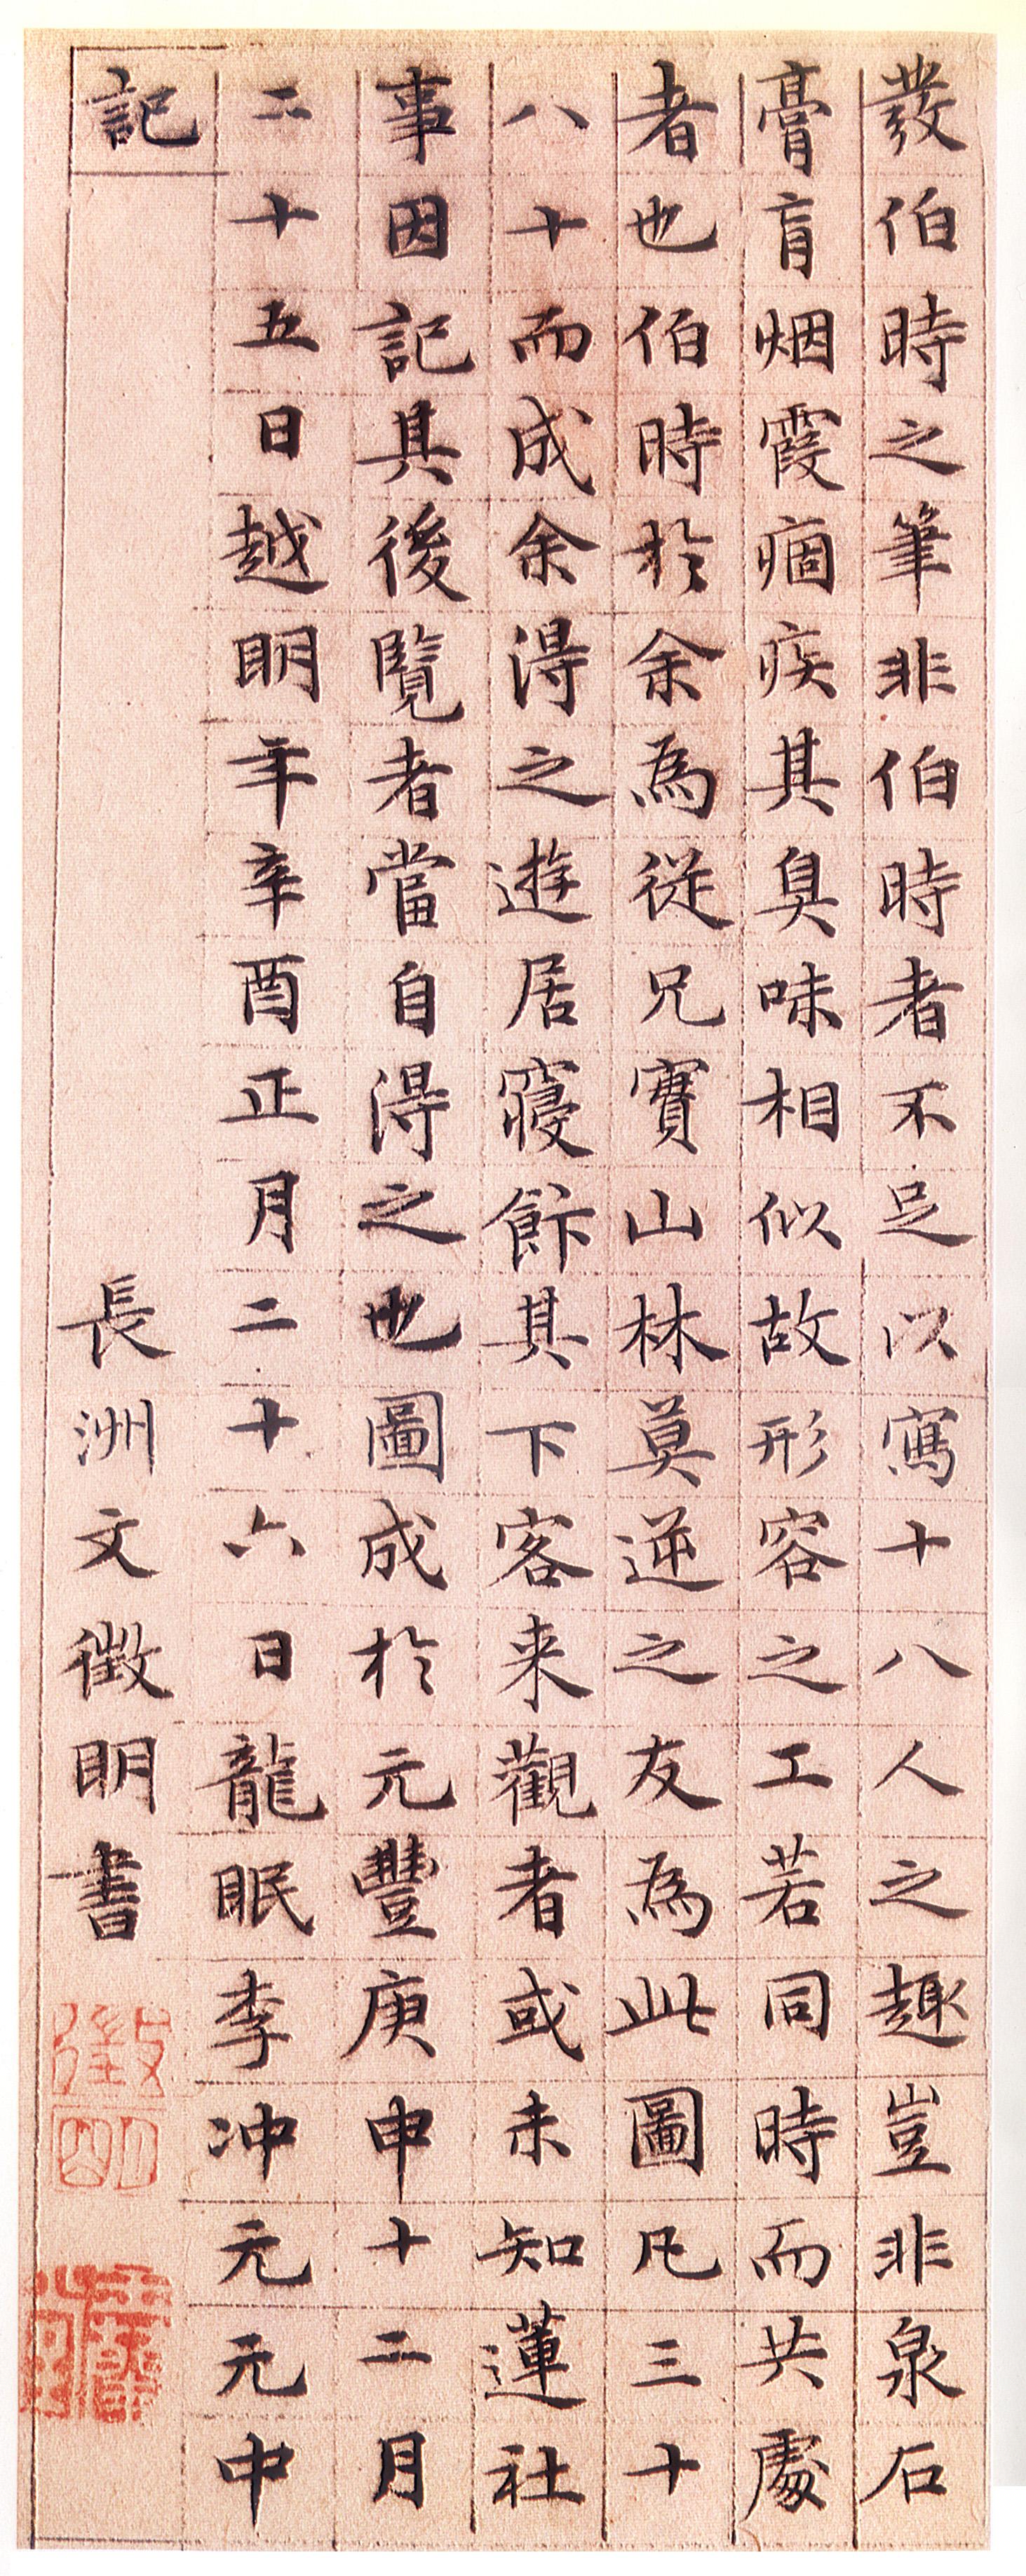 發伯時之筆非伯時者不足以寫十八人之趣豈非泉石
膏肓烟霞痼疾其臭味相似故形容之工若同時而共處
者也伯時於余為從兄實山林莫逆之友為此圖凡三十
八十而成余淂之遊居寢飰其下客来觀者或未知蓮社
事因記其後覽者當自淂之也圖成於元豐庚申十二月
二十五日越明年辛酉正月二十六日龍眠李冲元元中
記
長洲文徵明書
徵明